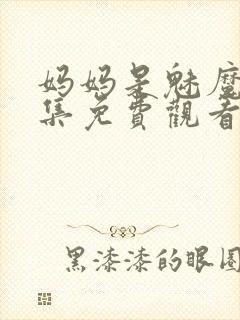 妈妈是魅魔
集免費觀看
黑漆漆的眼圈